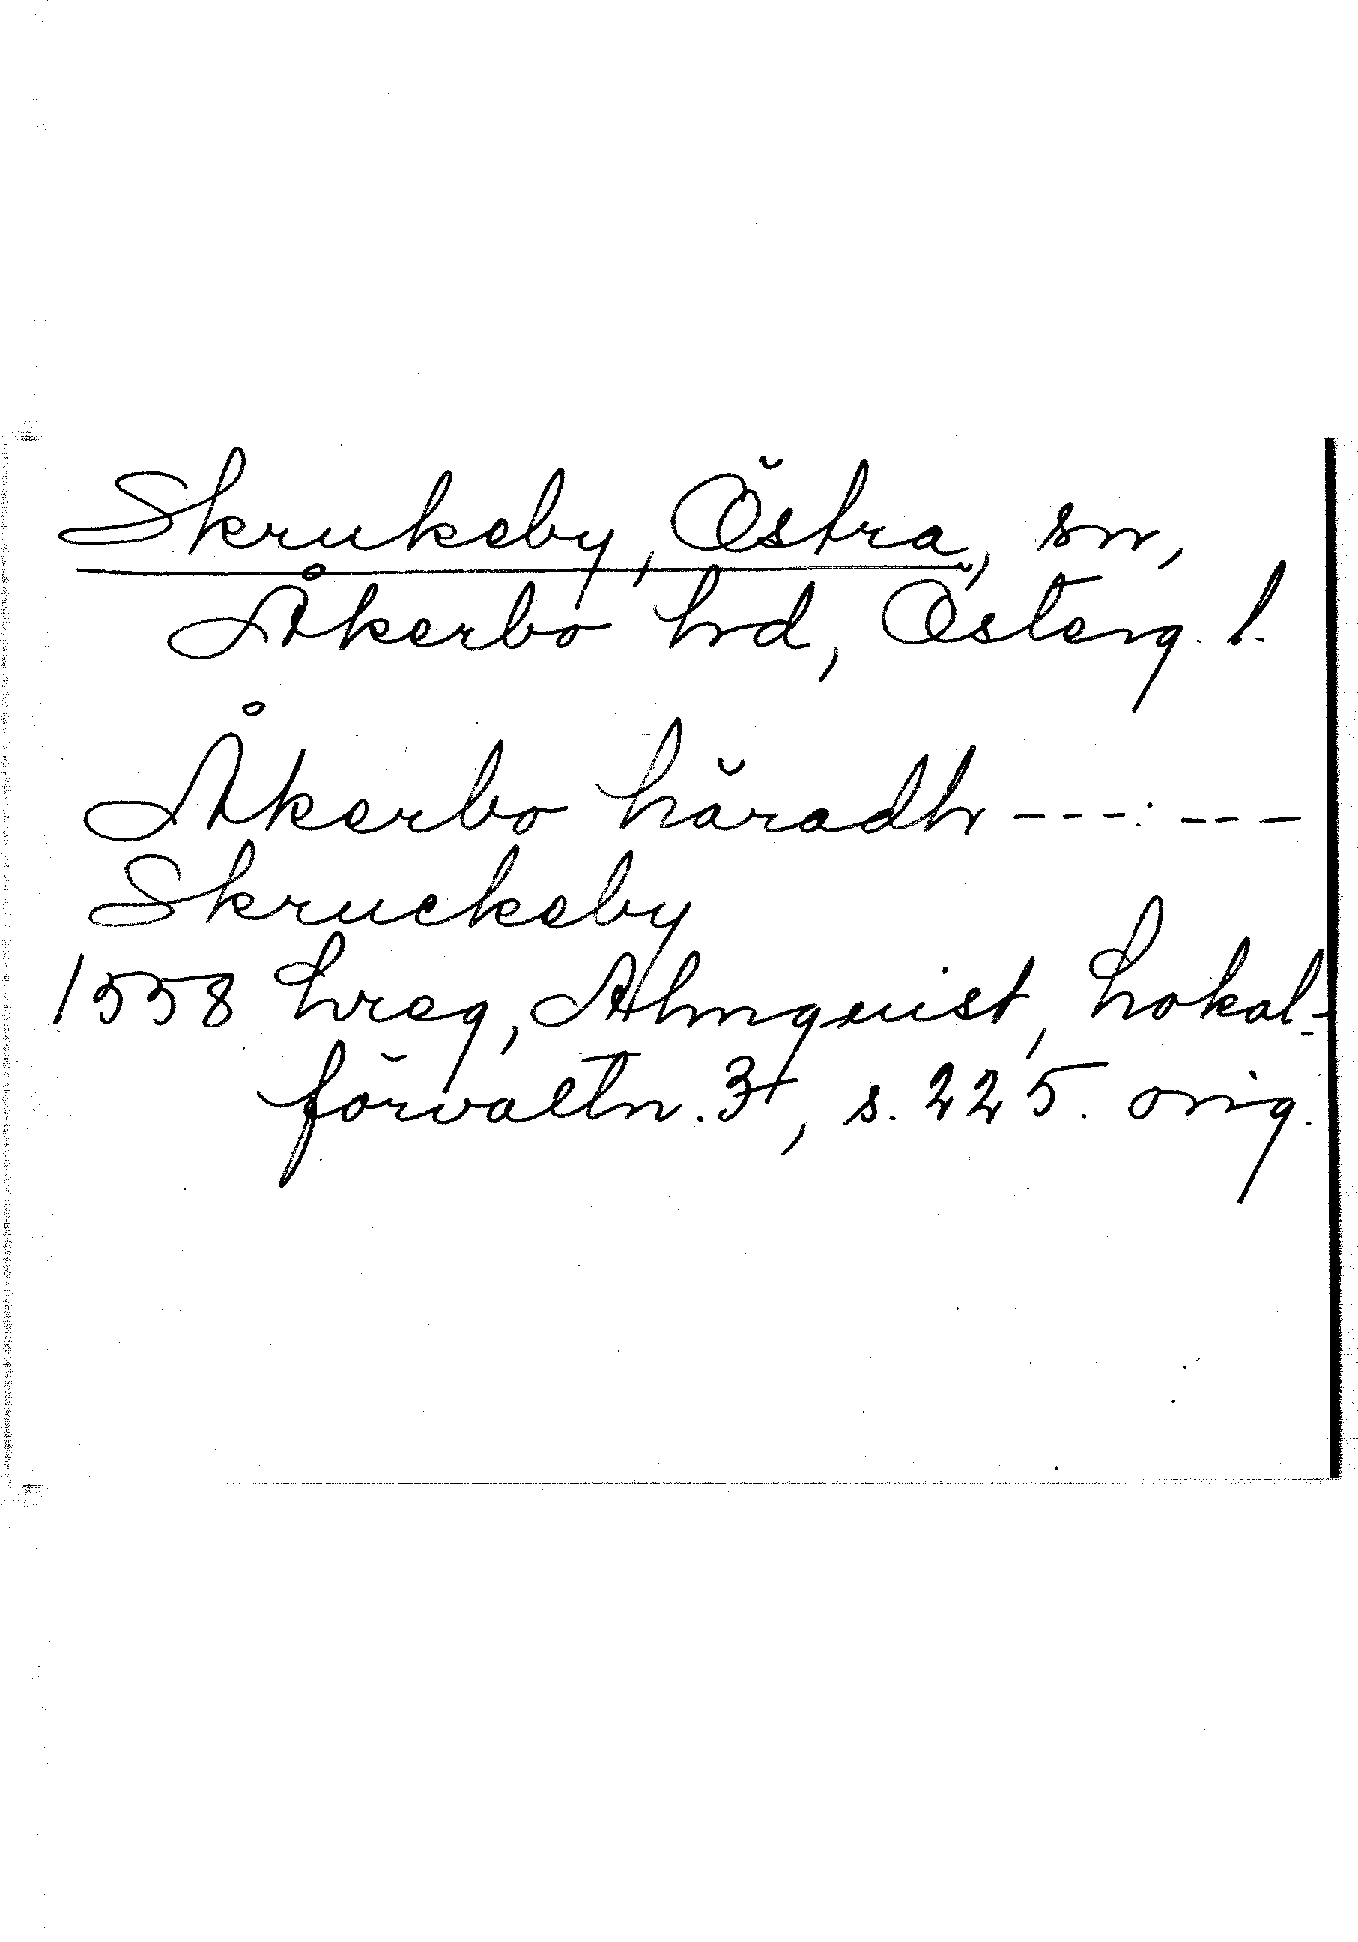 Skrukeby, Östra, sn,
Åkerbo hrd, Österg. l.
Åkerbo häradh --- : ---
Skruckeby
1558 hreg, Almquist, Lokal-
förvaltn. 3, s. 225. orig.